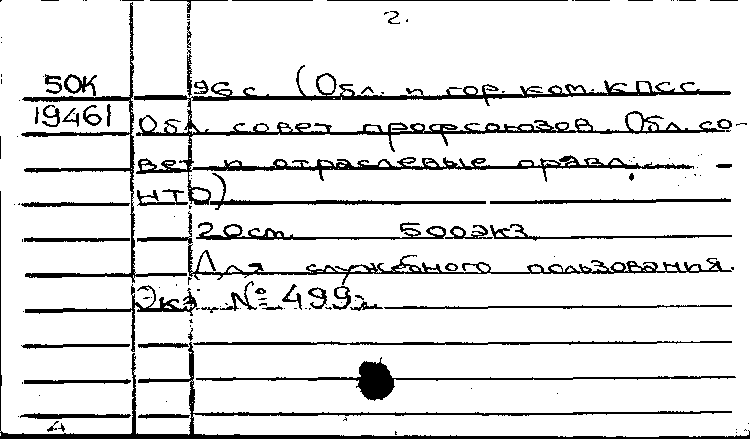 2.
50К 96 с. (Обл. и гор. ком. КПСС
19461 Обл. совет профсоюзов. Обл. со-
вет и отраслевые правл.
НТО).
20 см. 500 экз.
Для служебного пользования.
Экз. № 499